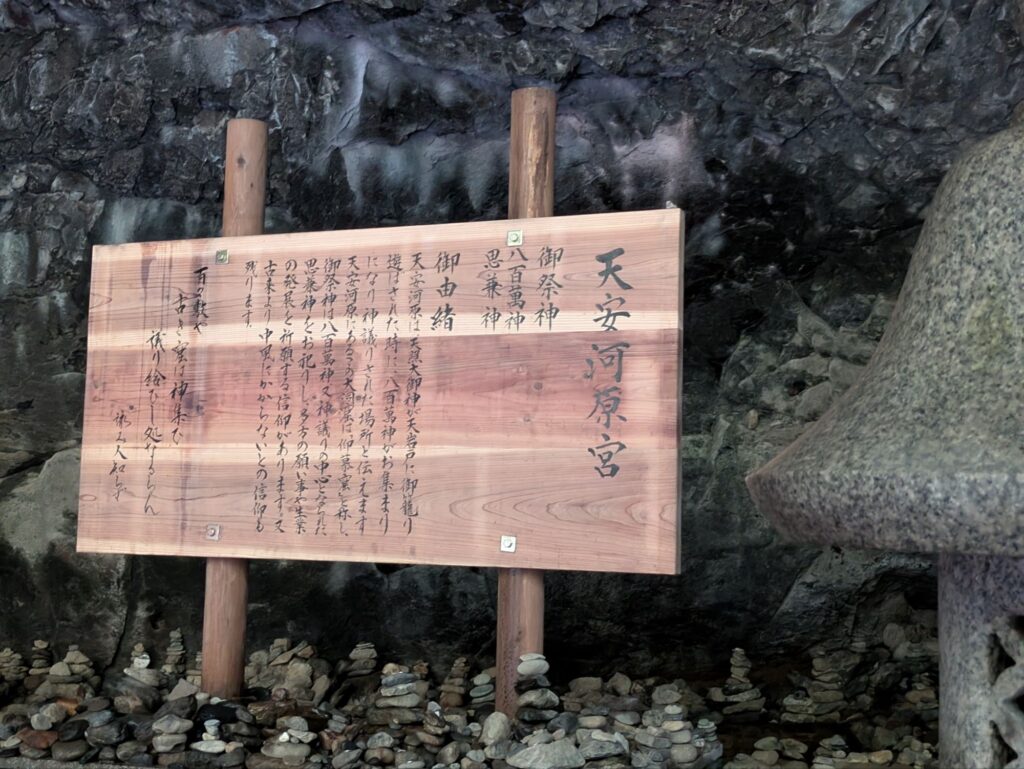 天安河原宮
御祭神
八百萬神
思兼神
御由緒
天安河原は、天照大御神が天岩戸に御籠り
遊ばされた時に、八百萬神がお集まり
になり神議りされた場所と伝えます
天安河原にあるこの大洞窟に(仰慕窟)と称し、
御祭神は八百萬神又神議りの中心となられた
思兼神をお祀りし、多方の願い事や生業
の発展を祈願する信仰があります。又
古来より、中風にかからないとの信仰も
残ります。
百の歌や
古き窟に神集ひ
議り給ひし処なるらん
詠み人知らず